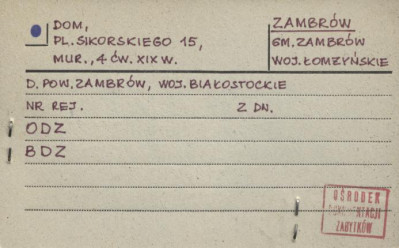 DOM,
PL. SIKORSKIEGO 15,
MUR., 4 ĆW. XIX W.
ZAMBRÓW
GM. ZAMBRÓW
WOJ. ŁOMŻYŃSKIE
D. POW. ZAMBRÓW, WOJ. BIAŁOSTOCKIE
NR REJ. Z DN.
ODZ
BDZ
OŚRODEK
DOKUMENTACJI
ZABYTKÓW